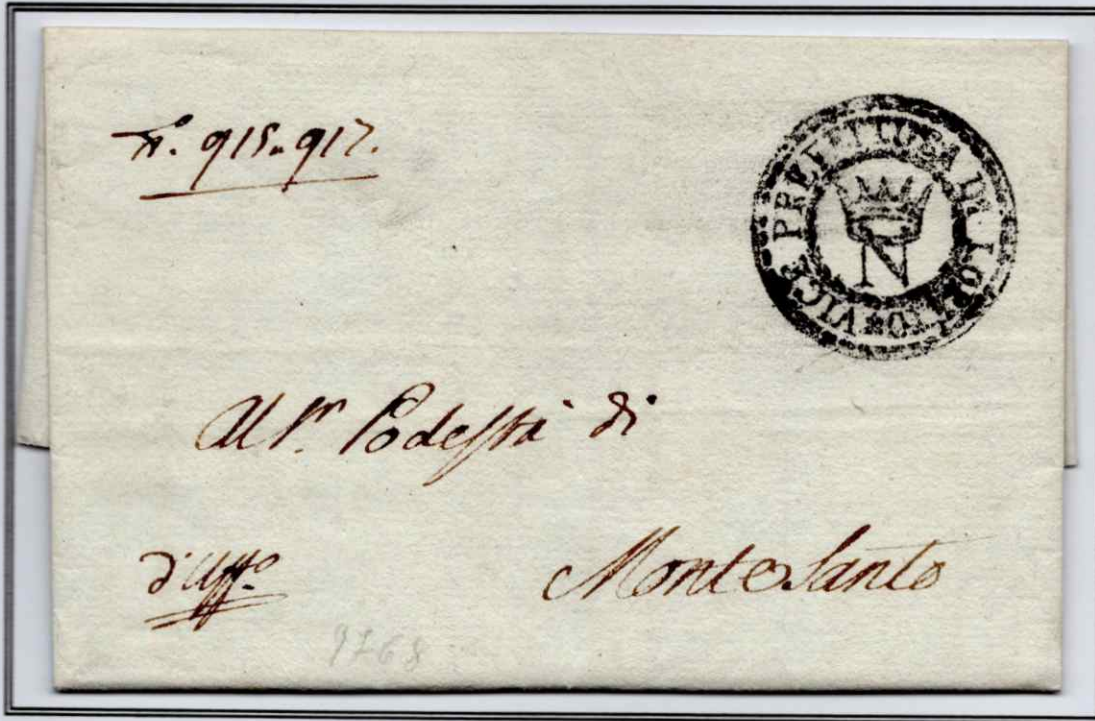 N. 915. 917.
VICE PREFETTURA DI LORETO
N
Al Sr. Podestà di
d'Uffo
Monte Santo
9768